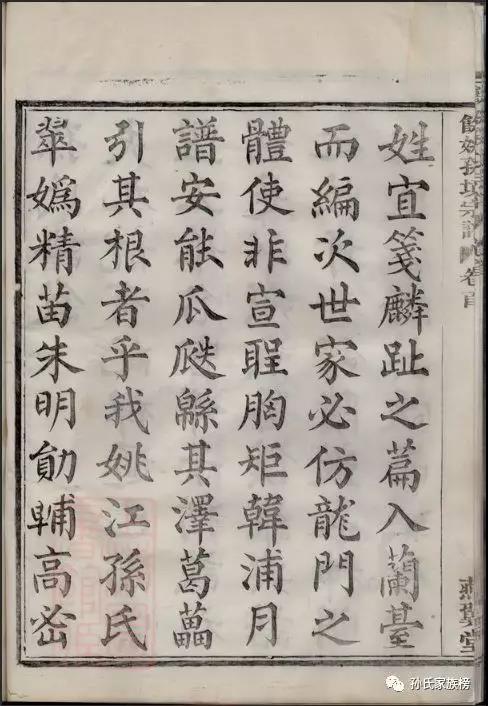 餘姚孫境宗譜 卷首
燕翼堂
姓宜箋麟趾之篇入蘭臺
而編次世家必仿龍門之
體使非宣聖胸矩韓浦月
譜安能瓜瓞緜其澤葛藟
引其根者乎我姚江孫氏
翠嬀精苗朱明勛輔高密
孙氏家族榜